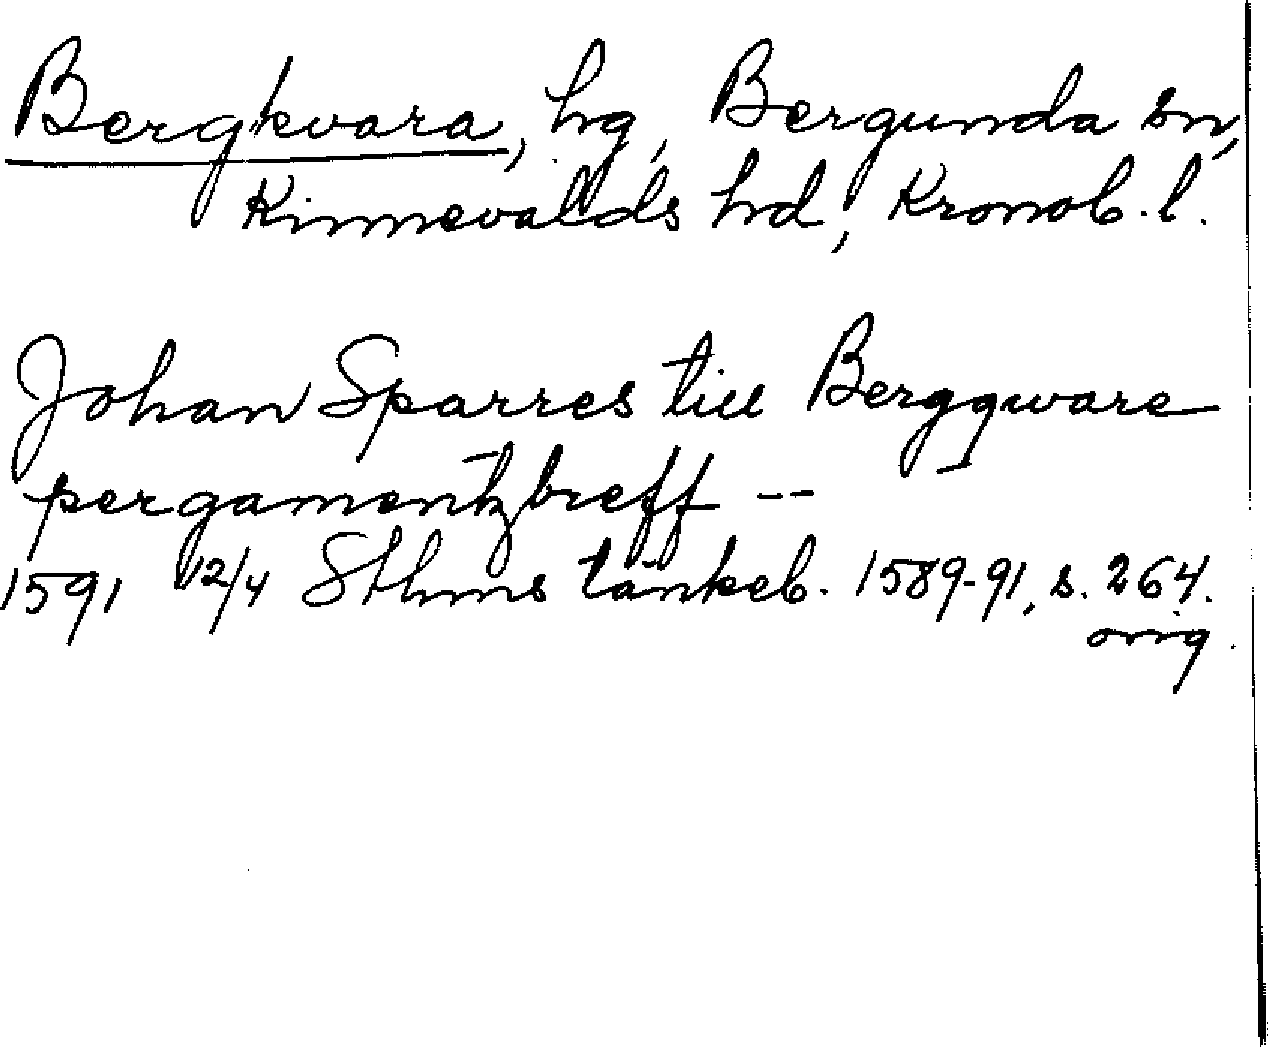 Bergkvara, hg, Bergunda sn,
Kinnevalds hd, Kronob. l.
Johan Sparres till Bergqware
pergamentzbreff --
1591 12/4 Sthms tänkeb. 1589-91, s. 264.
orig.